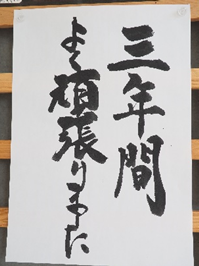 三年間
よく頑張りました